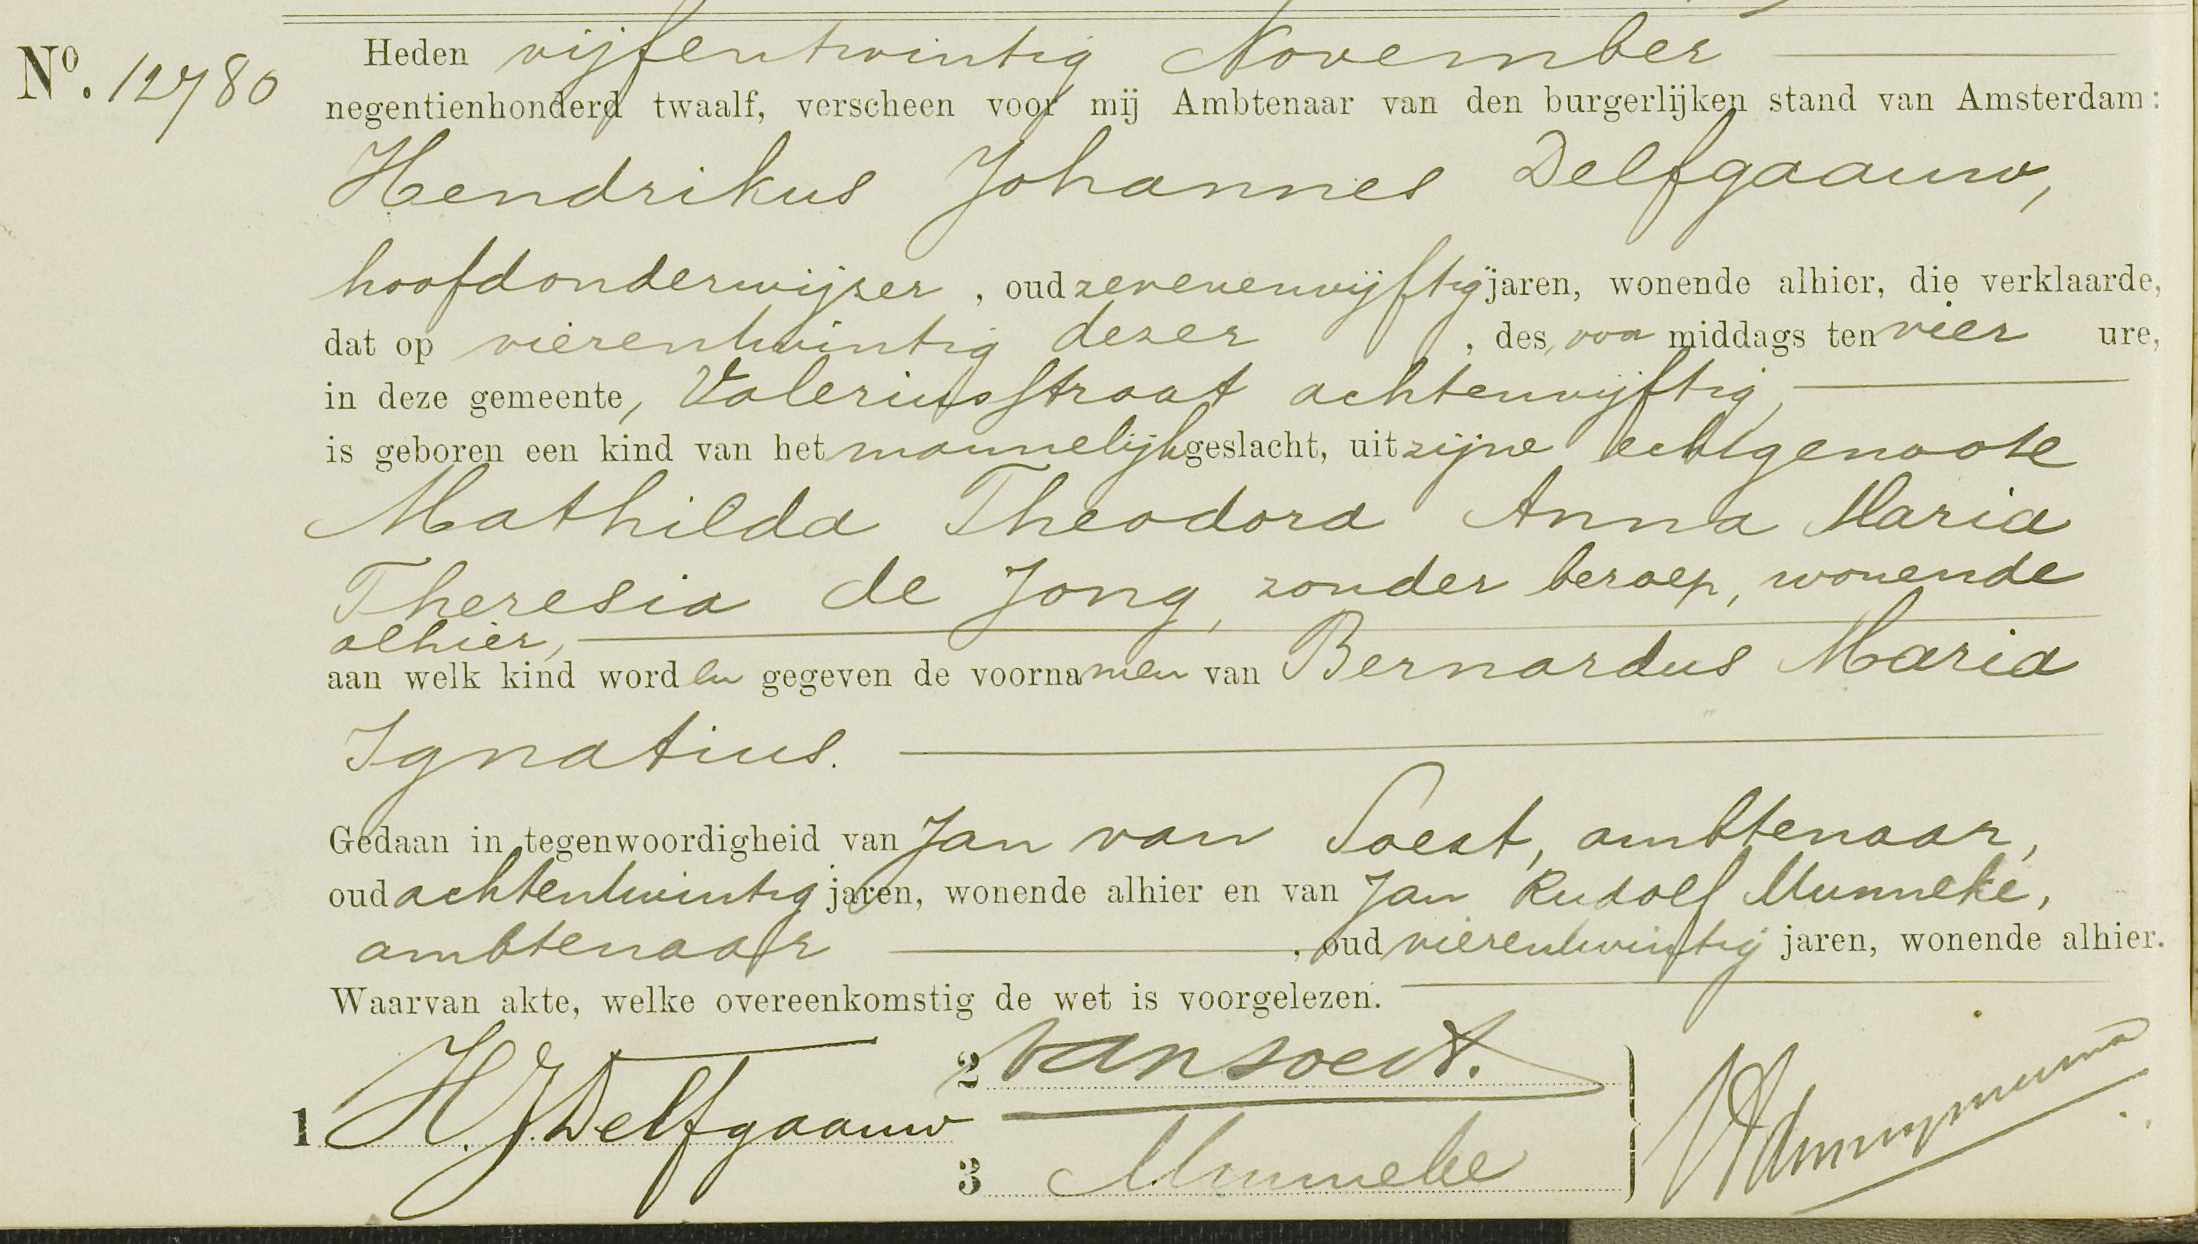 Nº. 12780
Heden vijfentwintig November
negentienhonderd twaalf, verscheen voor mij Ambtenaar van den burgerlijken stand van Amsterdam:
Hendrikus Johannes Delfgaauw,
hoofdonderwijzer, oud zevenenvijftig jaren, wonende alhier, die verklaarde,
dat op vierentwintig dezer, des voormiddags ten vier ure,
in deze gemeente, Valeriusstraat achtenvijftig,
is geboren een kind van het mannelijk geslacht, uit zijne echtgenoote
Mathilda Theodora Anna Maria
Theresia de Jong, zonder beroep, wonende
alhier,
aan welk kind worden gegeven de voornamen van Bernardus Maria
Ignatius.
Gedaan in tegenwoordigheid van Jan van Soest, ambtenaar,
oud achtentwintig jaren, wonende alhier en van Jan Rudolf Munneke,
ambtenaar, oud vierentwintig jaren, wonende alhier.
Waarvan akte, welke overeenkomstig de wet is voorgelezen.
1 H.J. Delfgaauw
2 van Soest.
3 Munneke